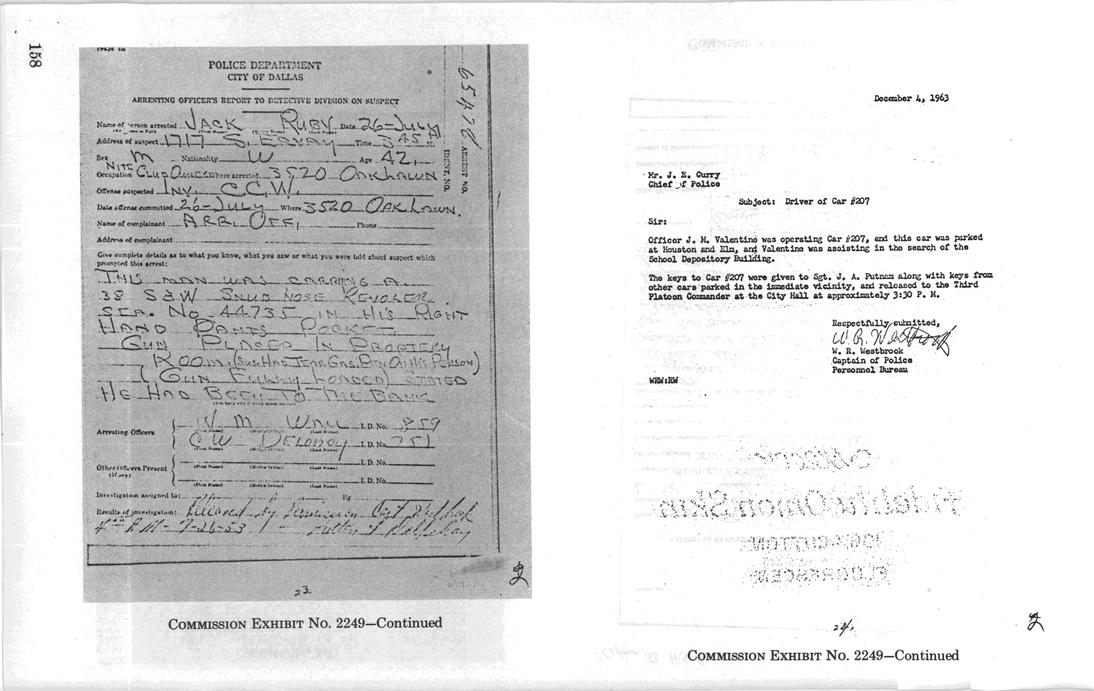 158
POLICE DEPARTMENT
CITY OF DALLAS
ARRESTING OFFICER'S REPORT TO DETECTIVE DIVISION ON SUSPECT
Name of person arrested JACK RUBY Date 26-July
Address of suspect 1717 S. ERVAY Time 3 45 P M
Sex M Nationality W Age 42
Occupation NITE CLUB OWNER Where arrested 3520 OAKLAWN
Offense suspected INV. C.C.W.
Date offense committed 26-July Where 3520 OAK LAWN.
Name of complainant ARR. OFF, Phone
Address of complainant
Give complete details as to what you know, what you saw or what you were told about suspect which
prompted this arrest:
THIS MAN WAS CARRING A
38 S&W SNUB NOSE REVOLER
SER. NO 44735 IN HIS RIGHT
HAND PANTS POCKET
GUN PLACED IN PROPTERY
ROOM, (SUS. HAD TEAR GAS PEN ON HIS PERSON)
(GUN FULLY LOADED) STATED
HE HAD BEEN TO THE BANK
IDENT. NO.
ARREST NO.
Arresting Officers
I. D. No. 859
C W DELONEY I. D. No. 751
(First Name) (Middle Initial) (Last Name)
Other Officers Present
(If any)
I. D. No.
(First Name) (Middle Initial) (Last Name)
I. D. No.
(First Name) (Middle Initial) (Last Name)
Investigation assigned to: By
Results of investigation: Released by Permission Capt
7-26-53
23
COMMISSION EXHIBIT No. 2249—Continued
December 4, 1963
Mr. J. E. Curry
Chief of Police
Subject: Driver of Car #207
Sir:
Officer J. M. Valentino was operating Car #207, and this car was parked
at Houston and Elm, and Valentino was assisting in the search of the
School Depository Building.
The keys to Car #207 were given to Sgt. J. A. Putnam along with keys from
other cars parked in the immediate vicinity, and released to the Third
Platoon Commander at the City Hall at approximately 3:30 P. M.
Respectfully submitted,
W. R. Westbrook
W. R. Westbrook
Captain of Police
Personnel Bureau
WRW:RW
24
COMMISSION EXHIBIT No. 2249—Continued